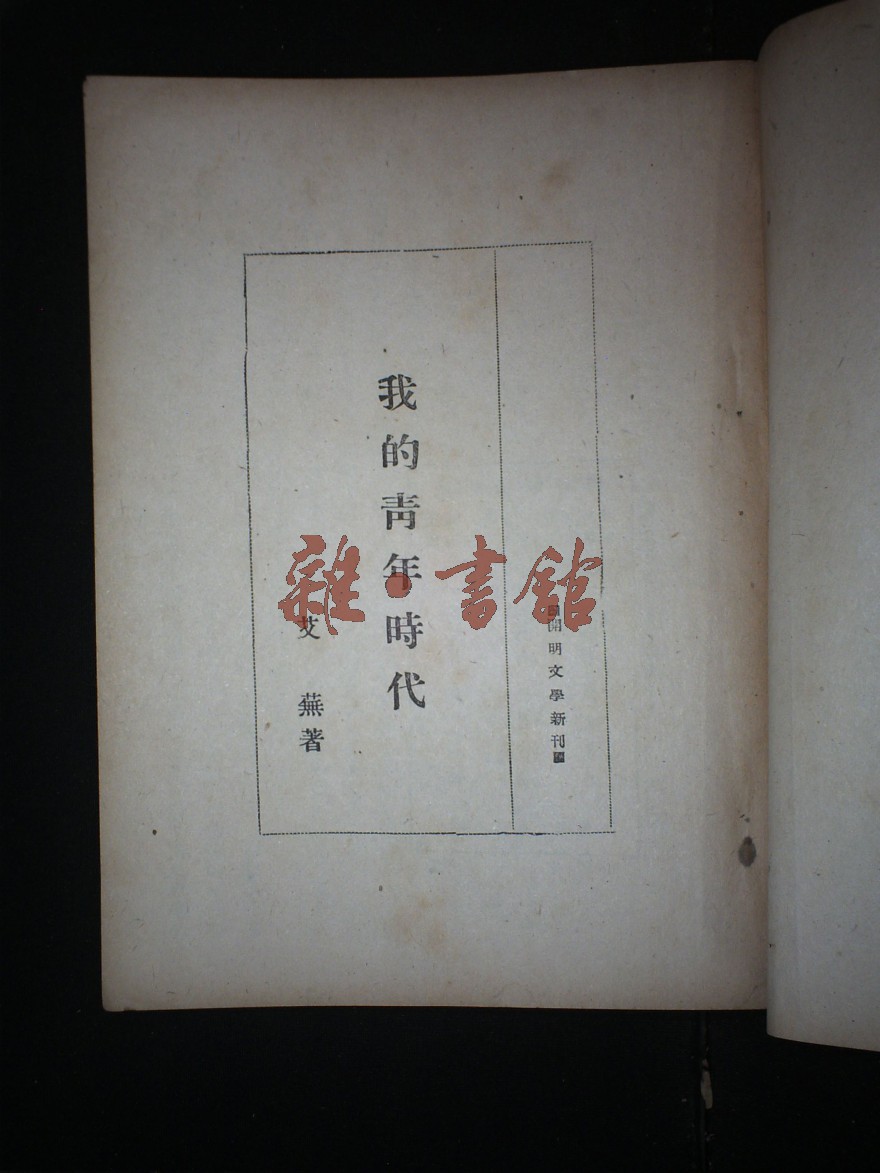 開明文學新刊
我的靑年時代
艾蕪著
雜·書館